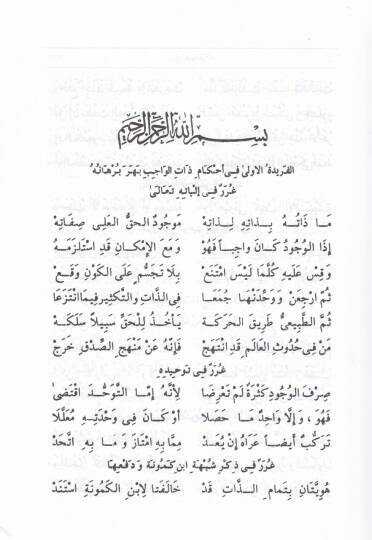 بِسْمِ اللهِ الرَّحْمٰنِ الرَّحِيمِ
الفَرِيدَةُ الاُولىٰ فِي اَحْكَامِ ذَاتِ الوَاجِبِ بَهَرَ بُرْهَانُهُ
غُرَرٌ فِي اِثْبَاتِهِ تَعَالىٰ
مَا ذَاتُهُ بِذَاتِهِ لِذَاتِهِ مَوْجُودٌ الحَقُّ العَلِي صِفَاتِهِ
إِذَا الوُجُودُ كَانَ وَاجِباً فَهُوَ وَمَعَ الإِمْكَانِ قَدِ اسْتَلْزَمَهُ
وَقِسْ عَلَيهِ كُلَّمَا لَيْسَ امْتَنَعْ بِلَا تَجَسُّمٍ عَلَى الكَوْنِ وَقَعْ
ثُمَّ ارْجِعَنْ وَوَحِّدَنْهَا جُمَعَا فِي الذَّاتِ وَالتَّكْثِيرُ فِيمَا انْتُزِعَا
ثُمَّ الطَّبِيعِيُّ طَرِيقَ الحَرَكَةِ يَأْخُذُ لِلْحَقِّ سَبِيلاً سَلَكَهُ
مَنْ فِي حُدُوثِ العَالَمِ قَدِ انْتَهَجْ فَإِنَّهُ عَنْ مَنْهَجِ الصِّدْقِ خَرَجْ
غُرَرٌ فِي تَوحِيدِهِ
صِرْفُ الوُجُودِ كَثْرَةً لَمْ تَعْرِضَا لِأَنَّهُ إِمَّا التَّوَحُّدَ اقْتَضىٰ
فَهُوَ، وَإِلَّا وَاحِدٌ مَا حَصَلَا أَوْ كَانَ فِي وَحْدَتِهِ مُعَلَّلَا
تَرَكُّبٌ أَيضاً عَرَاهُ إِنْ يُعَدْ مِمَّا بِهِ امْتَازَ وَمَا بِهِ اتَّحَدْ
غُرَرٌ فِي ذِكْرِ شُبْهَةِ ابنِ كَمُّونَةَ وَدَفْعِهَا
هُوِيَّتَانِ بِتَمَامِ الذَّاتِ قَدْ خَالَفَتَا لِابْنِ الكَمُونَةِ اسْتَنَدْ